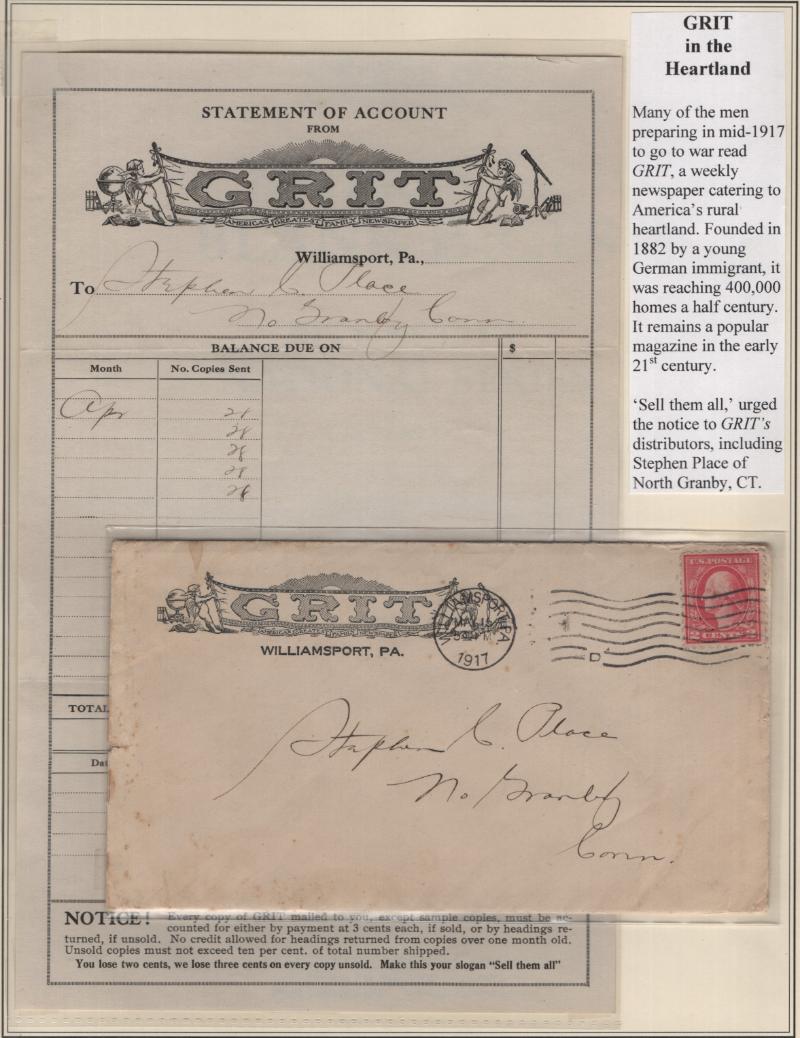 GRIT
in the
Heartland
Many of the men
preparing in mid-1917
to go to war read
GRIT, a weekly
newspaper catering to
America's rural
heartland. Founded in
1882 by a young
German immigrant, it
was reaching 400,000
homes a half century.
It remains a popular
magazine in the early
21st century.
‘Sell them all,’ urged
the notice to GRIT's
distributors, including
Stephen Place of
North Granby, CT.
STATEMENT OF ACCOUNT
FROM
GRIT
AMERICA'S GREATEST FAMILY NEWSPAPER
Williamsport, Pa.,
To Stephen C. Place
No Granby Conn.
BALANCE DUE ON $
Month No. Copies Sent
Apr 28
28
28
28
28
TOTAL
GRIT
AMERICA'S GREATEST FAMILY NEWSPAPER
WILLIAMSPORT, PA.
WILLIAMSPORT, PA
MAY 15
1917
D
U.S. POSTAGE
2 CENTS 2
Stephen C. Place
No Granby
Conn.
NOTICE! Every copy of GRIT mailed to you, except sample copies, must be ac-
counted for either by payment at 3 cents each, if sold, or by headings re-
turned, if unsold. No credit allowed for headings returned from copies over one month old.
Unsold copies must not exceed ten per cent. of total number shipped.
You lose two cents, we lose three cents on every copy unsold. Make this your slogan "Sell them all"